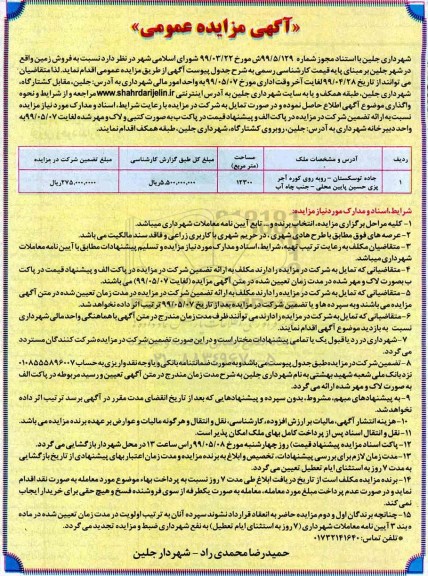 «آگهی مزایده عمومی»
شهرداری جلین با استناد مجوز شماره ۹۹/۵/۱۲۹ش مورخ ۹۹/۰۳/۲۲ شورای اسلامی شهر در نظر دارد نسبت به فروش زمین واقع
در شهر جلین بر مبنای پایه قیمت کارشناسی رسمی به شرح جدول پیوست آگهی از طریق مزایده عمومی اقدام نماید. لذا متقاضیان
می توانند از تاریخ ۹۹/۰۴/۲۸ لغایت آخر وقت اداری مورخ ۹۹/۰۵/۰۷ به واحد امور مالی شهرداری به آدرس: جلین، مقابل کشتارگاه،
شهرداری جلین، طبقه همکف و یا به سایت شهرداری جلین به آدرس اینترنتی www.shahrdarijelin.ir مراجعه و از شرایط و نحوه
واگذاری موضوع آگهی اطلاع حاصل نموده و در صورت تمایل به شرکت در مزایده با رعایت شرایط، اسناد و مدارک مورد نیاز مزایده
نسبت به ارائه تضمین شرکت در مزایده در پاکت الف و پیشنهاد قیمت در پاکت ب به صورت کتبی و لاک و مهر شده لغایت ۹۹/۰۵/۰۷ به
واحد دبیرخانه شهرداری به آدرس: جلین، روبروی کشتارگاه، شهرداری جلین، طبقه همکف اقدام نمایند.
ردیف | آدرس و مشخصات ملک | مساحت (متر مربع) | مبلغ کل طبق گزارش کارشناسی | مبلغ تضمین شرکت در مزایده
۱ | جاده توسکستان – روبه روی کوره آجر پزی حسین پایین محلی – جنب چاه آب | ۱۲۳۰۰ | ۵،۵۰۰،۰۰۰،۰۰۰ریال | ۲۷۵،۰۰۰،۰۰۰ریال
شرایط، اسناد و مدارک مورد نیاز مزایده:
۱- کلیه مراحل برگزاری مزایده، انتخاب برنده و ... تابع آیین نامه معاملات شهرداری میباشد.
۲- عرصه های فوق مطابق با طرح هادی شهری، در حریم شهری با کاربری زراعی و فاقد سند مالکیت می باشد.
۳- متقاضیان مکلف به رعایت ترتیب تهیه، شرایط، اسناد و مدارک مورد نیاز مزایده و تسلیم پیشنهادات مطابق با آیین نامه معاملات
شهرداری میباشد.
۴- متقاضیانی که تمایل به شرکت در مزایده را دارند مکلف به ارائه تضمین شرکت در مزایده در پاکت الف و پیشنهاد قیمت در پاکت
ب بصورت لاک و مهر شده در مدت زمان تعیین شده در متن آگهی مزایده (لغایت ۹۹/۰۵/۰۷) می باشند.
۵- متقاضیانی که تمایل به شرکت در مزایده را دارند مکلف به ارائه تضمین شرکت در مزایده در مدت زمان تعیین شده در متن آگهی
مزایده می باشند و به سپرده ها و یا تضمین شرکت در مزایده بعد از تاریخ ۹۹/۰۵/۰۷ ترتیب اثر داده نخواهد شد.
۶- متقاضیانی که تمایل به شرکت در مزایده را دارند می توانند ظرف مدت زمان مندرج در متن آگهی با هماهنگی واحد مالی شهرداری
نسبت به بازدید موضوع آگهی اقدام نمایند.
۷- شهرداری در رد یا قبول یک یا تمامی پیشنهادات مختار است و در این صورت تضمین شرکت در مزایده شرکت کنندگان مسترد
می گردد.
۸- تضمین شرکت در مزایده طبق جدول پیوست می باشد و به صورت ضمانتنامه بانکی و یا وجه نقد واریزی به حساب ۰۱۰۸۵۵۵۸۹۶۰۰۷
نزد بانک ملی شعبه شهید بهشتی به نام شهرداری جلین به شرح مدت زمان مندرج در متن آگهی تعیین و رسید مربوطه در پاکت الف
به صورت لاک و مهر شده ارائه می گردد.
۹- به پیشنهادهای مبهم، مشروط، بدون سپرده و پیشنهادهایی که بعد از تاریخ انقضای مدت مقرر در آگهی برسد ترتیب اثر داده
نخواهد شد.
۱۰- هزینه انتشار آگهی، مالیات بر ارزش افزوده، کارشناسی، نقل و انتقال و هرگونه مالیات و عوارض بر عهده برنده مزایده می باشد.
۱۱- نقل و انتقال اسناد پس از پرداخت کامل بهای ملک امکان پذیر است.
۱۲- پاکت اسناد مزایده (پیشنهاد قیمت) روز چهارشنبه مورخ ۹۹/۰۵/۰۸ راس ساعت ۱۳ در محل شهرداری بازگشایی می گردد.
۱۳- مدت زمان لازم برای بررسی پیشنهادات، تخصیص و ابلاغ به برنده مزایده و مدت زمان اعتبار بهای پیشنهادی از تاریخ بازگشایی
به مدت ۷ روز به استثنای ایام تعطیل تعیین می گردد.
۱۴- برنده مزایده مکلف است از تاریخ دریافت ابلاغ طی مدت ۷ روز نسبت به پرداخت بهاء موضوع مورد معامله به صورت نقد اقدام
نماید و در صورت عدم پرداخت مبلغ مورد معامله، معامله به صورت یکطرفه از سوی فروشنده فسخ و هیچ حقی برای خریدار ایجاب
نمی کند.
۱۵- چنانچه برندگان اول و دوم مزایده حاضر به انعقاد قرارداد نشوند سپرده آنان به ترتیب اولویت در مدت زمان تعیین شده در ماده
۵ بند ۳ آیین نامه معاملات شهرداری (۷ روز به استثنای ایام تعطیل) به نفع شهرداری ضبط و مزایده تجدید می گردد.
* تلفن تماس: ۰۱۷۳۲۱۴۱۶۴۰
حمیدرضا محمدی راد - شهردار جلین